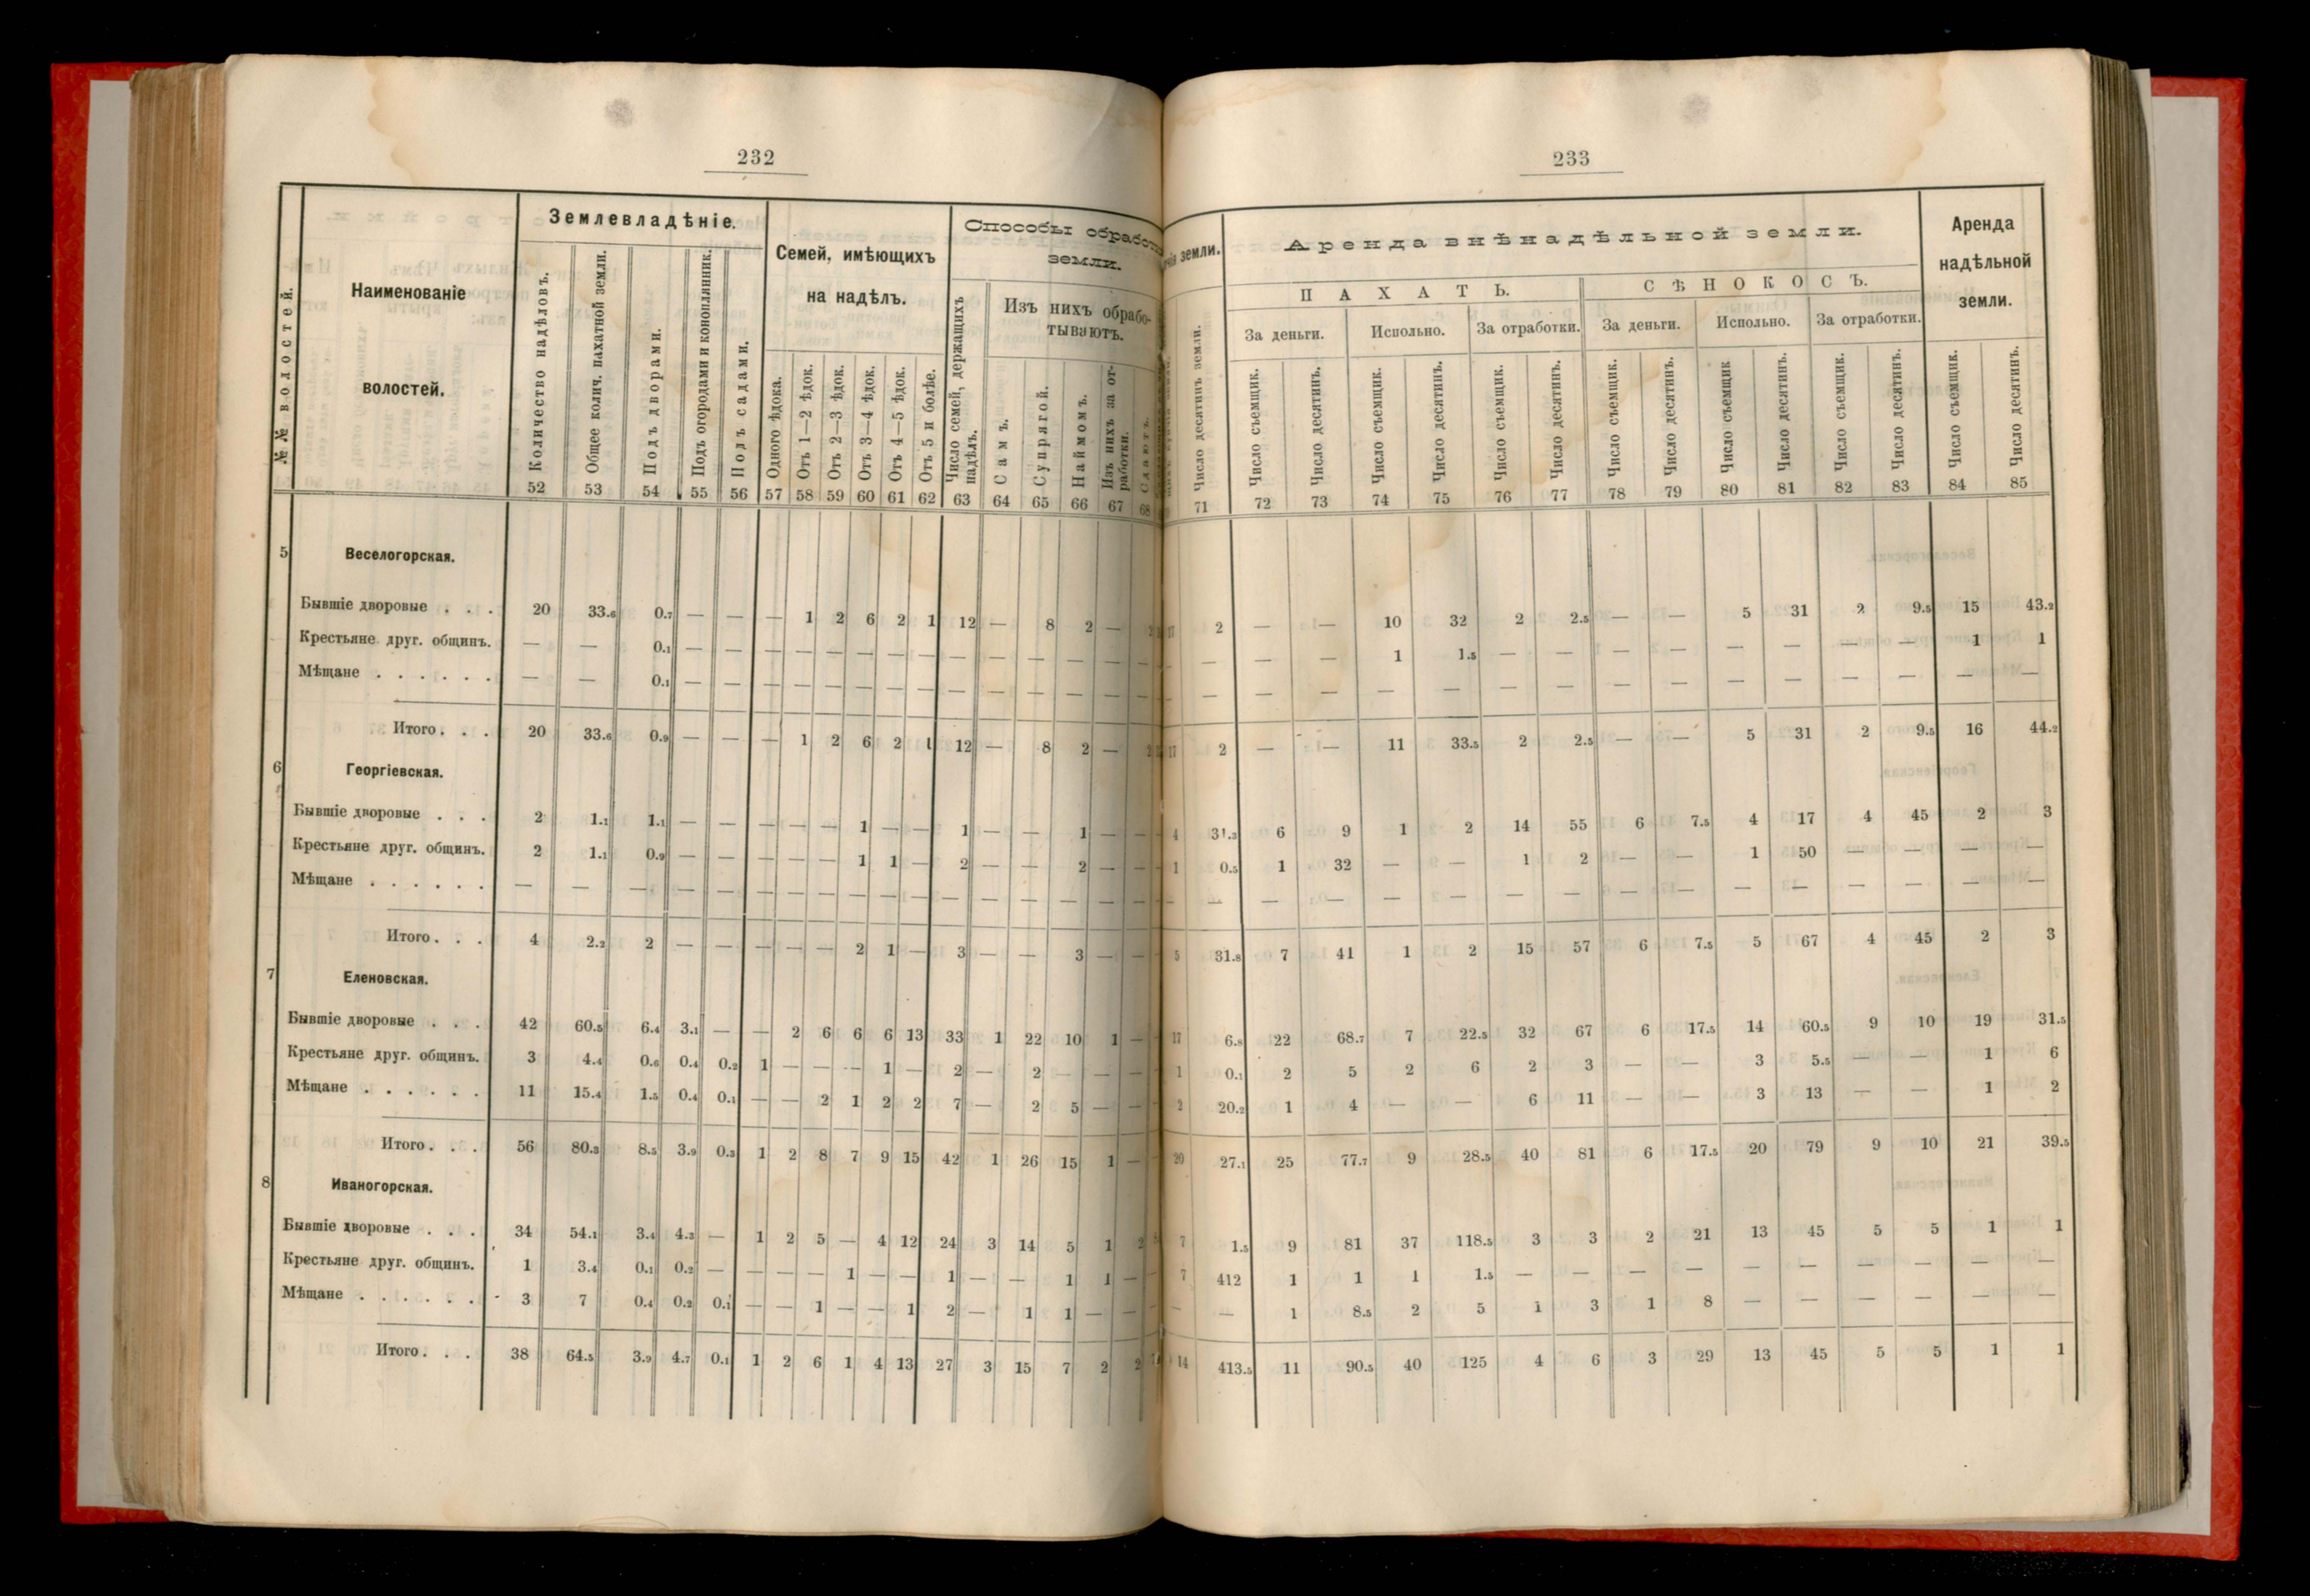 232
№№ волостей.
Наименованіе
волостей.
Землевладѣніе.
Количество надѣловъ.
Общее колич. пахатной земли.
Подъ дворами.
Подъ огородами и конопляник.
Подъ садами.
Семей, имѣющихъ
на надѣлъ.
Одного ѣдока.
Отъ 1—2 ѣдок.
Отъ 2—3 ѣдок.
Отъ 3—4 ѣдок.
Отъ 4—5 ѣдок.
Отъ 5 и болѣе.
Способы обработ
земли.
Число семей, держащихъ
надѣлъ.
Изъ нихъ обрабо-
тываютъ.
Самъ.
Супрягой.
Наймомъ.
Изъ нихъ за от-
работки.
Сдаютъ.
52 53 54 55 56 57 58 59 60 61 62 63 64 65 66 67 68
5 Веселогорская.
Бывшіе дворовые . . . 20 33.6 0.7 — — — 1 2 6 2 1 12 — 8 2 — 2
Крестьяне друг. общинъ. — — 0.1 — — — — — — — — — — — — —
Мѣщане . . . . . . — — 0.1 — — — — — — — — — — — — —
Итого. . . 20 33.6 0.9 — — — 1 2 6 2 1 12 — 8 2 — 2
6 Георгіевская.
Бывшіе дворовые . . . 2 1.1 1.1 — — — — — 1 — — 1 — — 1 — —
Крестьяне друг. общинъ. 2 1.1 0.9 — — — — — 1 1 — 2 — — 2 — —
Мѣщане . . . . . . — — — — — — — — — — — — — — — — —
Итого. . . 4 2.2 2 — — — — — 2 1 — 3 — — 3 — —
7 Еленовская.
Бывшіе дворовые . . . 42 60.5 6.4 3.1 — — 2 6 6 6 13 33 1 22 10 1 —
Крестьяне друг. общинъ. 3 4.4 0.6 0.4 0.2 1 — — — 1 — 2 — 2 — — —
Мѣщане . . . . . . 11 15.4 1.5 0.4 0.1 — — 2 1 2 2 7 — 2 5 — —
Итого. . . 56 80.3 8.5 3.9 0.3 1 2 8 7 9 15 42 1 26 15 1 —
8 Иваногорская.
Бывшіе дворовые . . . 34 54.1 3.4 4.3 — 1 2 5 — 4 12 24 3 14 5 1 2
Крестьяне друг. общинъ. 1 3.4 0.1 0.2 — — — — 1 — — 1 — — 1 1 —
Мѣщане . . . . . . 3 7 0.4 0.2 0.1 — — 1 — — 1 2 — 1 1 — —
Итого. . . 38 64.5 3.9 4.7 0.1 1 2 6 1 4 13 27 3 15 7 2 2
233
земли.
Число десятинъ земли.
Аренда внѣнадѣльной земли.
ПАХАТЬ.
СѢНОКОСЪ.
За деньги. Испольно. За отработки. За деньги. Испольно. За отработки.
Число съемщик.
Число десятинъ.
Число съемщик.
Число десятинъ.
Число съемщик.
Число десятинъ.
Число съемщик.
Число десятинъ.
Число съемщик
Число десятинъ.
Число съемщик.
Число десятинъ.
Аренда
надѣльной
земли.
Число съемщик.
Число десятинъ.
71 72 73 74 75 76 77 78 79 80 81 82 83 84 85
17 2 — — 10 32 2 2.5 — — 5 31 2 9.5 15 43.2
— — — — 1 1.5 — — — — — — — — 1 1
— — — — — — — — — — — — — — — —
17 2 — — 11 33.5 2 2.5 — — 5 31 2 9.5 16 44.2
4 31.3 6 9 1 2 14 55 6 7.5 4 17 4 45 2 3
1 0.5 1 32 — — 1 2 — — 1 50 — — — —
— — — — — — — — — — — — — — — —
5 31.8 7 41 1 2 15 57 6 7.5 5 67 4 45 2 3
17 6.8 22 68.7 7 22.5 32 67 6 17.5 14 60.5 9 10 19 31.5
1 0.1 2 5 2 6 2 3 — — 3 5.5 — — 1 6
2 20.2 1 4 — — 6 11 — — 3 13 — — 1 2
20 27.1 25 77.7 9 28.5 40 81 6 17.5 20 79 9 10 21 39.5
7 1.5 9 81 37 118.5 3 3 2 21 13 45 5 5 1 1
7 412 1 1 1 1.5 — — — — — — — — — —
— — 1 8.5 2 5 1 3 1 8 — — — — — —
14 413.5 11 90.5 40 125 4 6 3 29 13 45 5 5 1 1